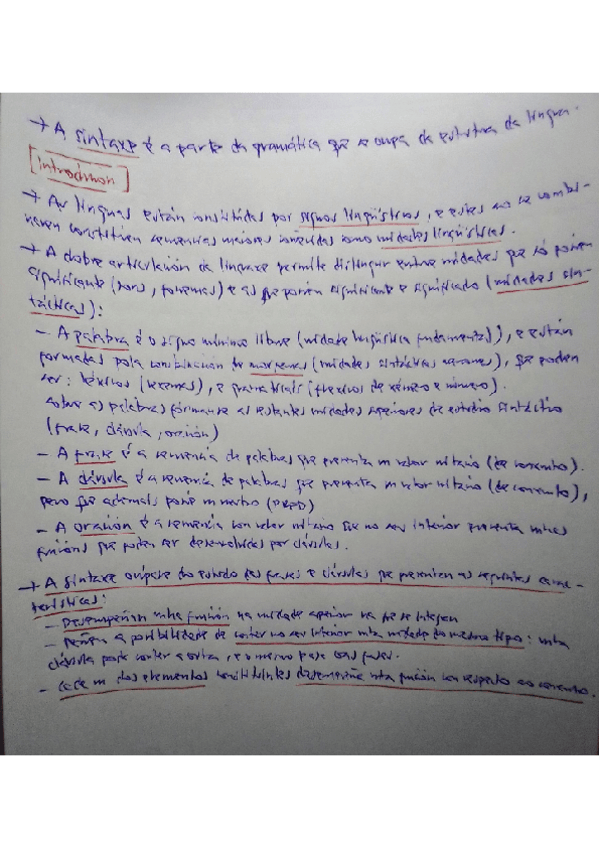 → A sintaxe é a parte da gramática que se ocupa da estrutura da lingua.
Introducion
→ As linguas están constituídas por signos lingüísticos, e estes ao se combi-
naren constitúen secuencias maiores coñecidas como unidades lingüísticas.
→ A dobre articulación da linguaxe permite distinguir entre unidades que só posúen
significante (fonemas) e as que posúen significante e significado (unidades sin-
tácticas):
– A palabra é o signo mínimo libre (unidade lingüística fundamental), e están
formadas pola combinación de morfemas (unidades sintácticas), que poden
ser: léxicos (lexemas), e gramaticais (flexivos de xénero e número).
sobre as palabras fórmanse as restantes unidades superiores de estudio sintáctico
(frase, cláusula, oración)
– A frase é a secuencia de palabras que presenta un valor unitario (de conxunto).
– A cláusula é a secuencia de palabras que presenta un valor unitario (de conxunto),
pero que ademais posúe un verbo (PRED)
– A oración é a secuencia con valor unitario que no seu interior presenta unhas
funcións que poden ser desenvolvidas por cláusulas.
→ A sintaxe ocúpase do estudo das frases e cláusulas que presentan as seguintes carac-
terísticas:
– Desempeñan unha función na unidade superior na que se integran
– posúen a posibilidade de conter no seu interior unha unidade do mesmo tipo: unha
cláusula pode conter a outra, e o mesmo pasa coas frases.
– cada un dos elementos constituíntes desempeña unha función con respecto ao conxunto.